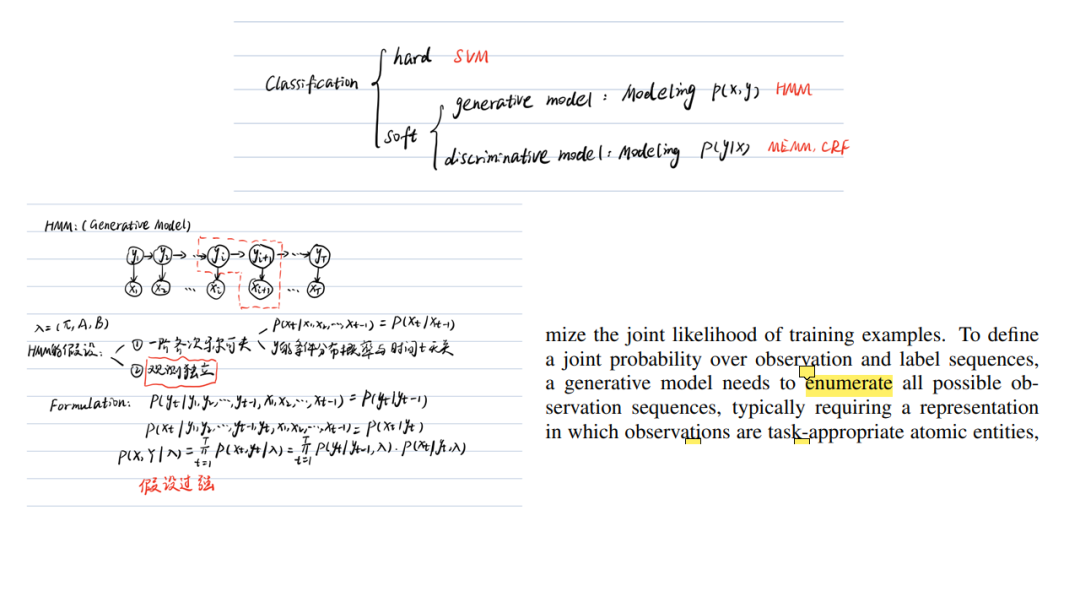 Classification
hard SVM
soft
generative model: Modeling P(X,Y) HMM
discriminative model: Modeling P(Y|X) MEMM. CRF
HMM: (Generative Model)
y1 y2 ... yi yi+1 ... yT
x1 x2 ... xi xi+1 ... xT
λ=(π, A, B)
HMM的假设:
① 一阶齐次马尔可夫
P(Xt|X1,X2,...,Xt-1) = P(Xt|Xt-1)
y的条件分布概率与时间t无关
② 观测独立
Formulation: P(yt|y1,y2,...,yt-1,x1,x2,...,xt-1) = P(yt|yt-1)
P(xt|y1,y2,...,yt-1,yt,x1,x2,...,xt-1) = P(xt|yt)
P(X,Y|λ) = π t=1 T P(xt,yt|λ) = π t=1 T P(yt|yt-1,λ)·P(xt|yt,λ)
假设过强
mize the joint likelihood of training examples. To define
a joint probability over observation and label sequences,
a generative model needs to enumerate all possible ob-
servation sequences, typically requiring a representation
in which observations are task-appropriate atomic entities,